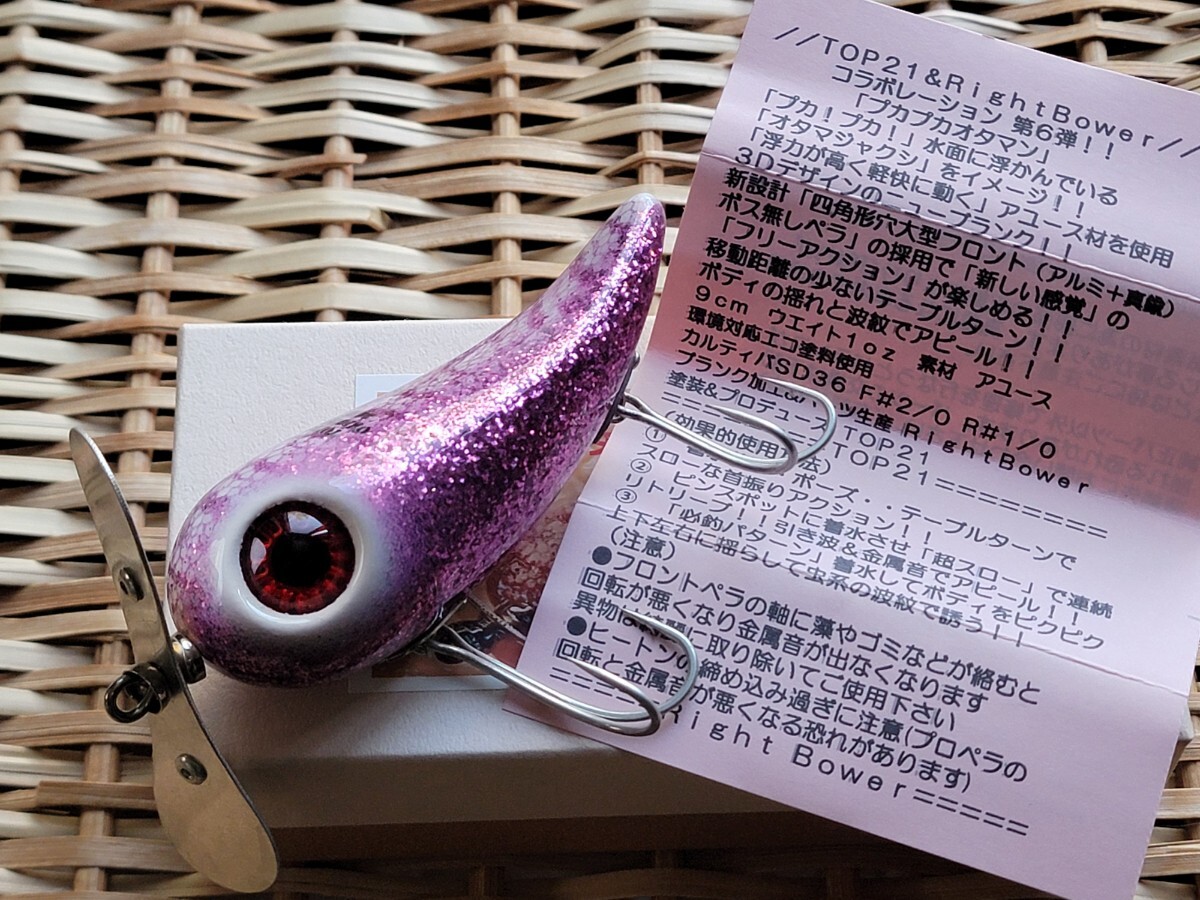 //TOP21&RightBower//
コラボレーション 第6弾!!
「プカプカオタマン」
「プカ!プカ!!水面に浮かんでいる
「オタマジャクシ」をイメージ!!
「浮力が高く軽快に動く」アユース材を使用
3Dデザインのニューブランク!!
新設計「四角形穴大型フロント(アルミ+真鍮)
ボス無しペラ」の採用で「新しい感覚」の
「フリーアクション」が楽しめる!!
移動距離の少ないテーブルターン!!
ボディの揺れと波紋でアピール!!
9cm ウエイト1oz 素材 アユース
環境対応エコ塗料使用
カルティバSD36 F#2/0 R#1/0
ブランク加工& ツ生産 RightBower
塗装&プロデュース TOP21
=====TOP21========
(効果的使用 法)
① 着 ポーズ・テーブルターンで
スローな首振りアクション!!
② ピンスポットに着水させ「超スロー」で連続
リトリーブ!!引き波&金属音でアピール!!
③ 「必釣パターン」着水してボディをピクピク
上下左右に揺らして虫系の波紋で誘う!!
(注意)
●フロントペラの軸に藻やゴミなどが絡むと
回転が悪くなり金属音が出なくなります
異物は に取り除いてご使用下さい
●ヒートンの締め込み過ぎに注意(プロペラの
回転と金属音が悪くなる恐れがあります)
===== Right Bower=====